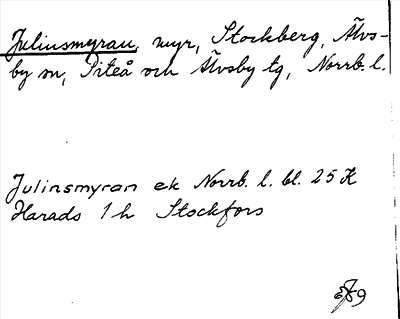 Juliusmyran, myr, Stockberg, Älvs-
by sn, Piteå och Älvsby tg, Norrb. l.
Julinsmyran ek Norrb. l. bl. 25 K
Harads 1 h Stockfors